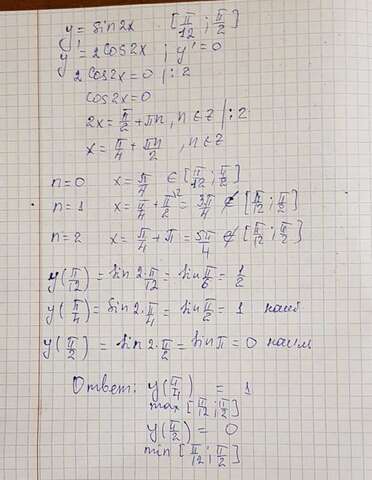 y = sin2x [π/12 ; π/2]
y' = 2cos2x ; y' = 0
2cos2x = 0 |:2
cos2x = 0
2x = π/2 + πn, n ∈ Z |:2
x = π/4 + πn/2, n ∈ Z
n=0 x = π/4 ∈ [π/12 ; π/2]
n=1 x = π/4 + π/2 = 3π/4 ∉ [π/12 ; π/2]
n=2 x = π/4 + π = 5π/4 ∉ [π/12 ; π/2]
y(π/12) = sin2·π/12 = sin π/6 = 1/2
y(π/4) = sin2·π/4 = sin π/2 = 1 наиб
y(π/2) = sin2·π/2 = sin π = 0 наим
Ответ: y(π/4) = 1
max [π/12 ; π/2]
y(π/2) = 0
min [π/12 ; π/2]